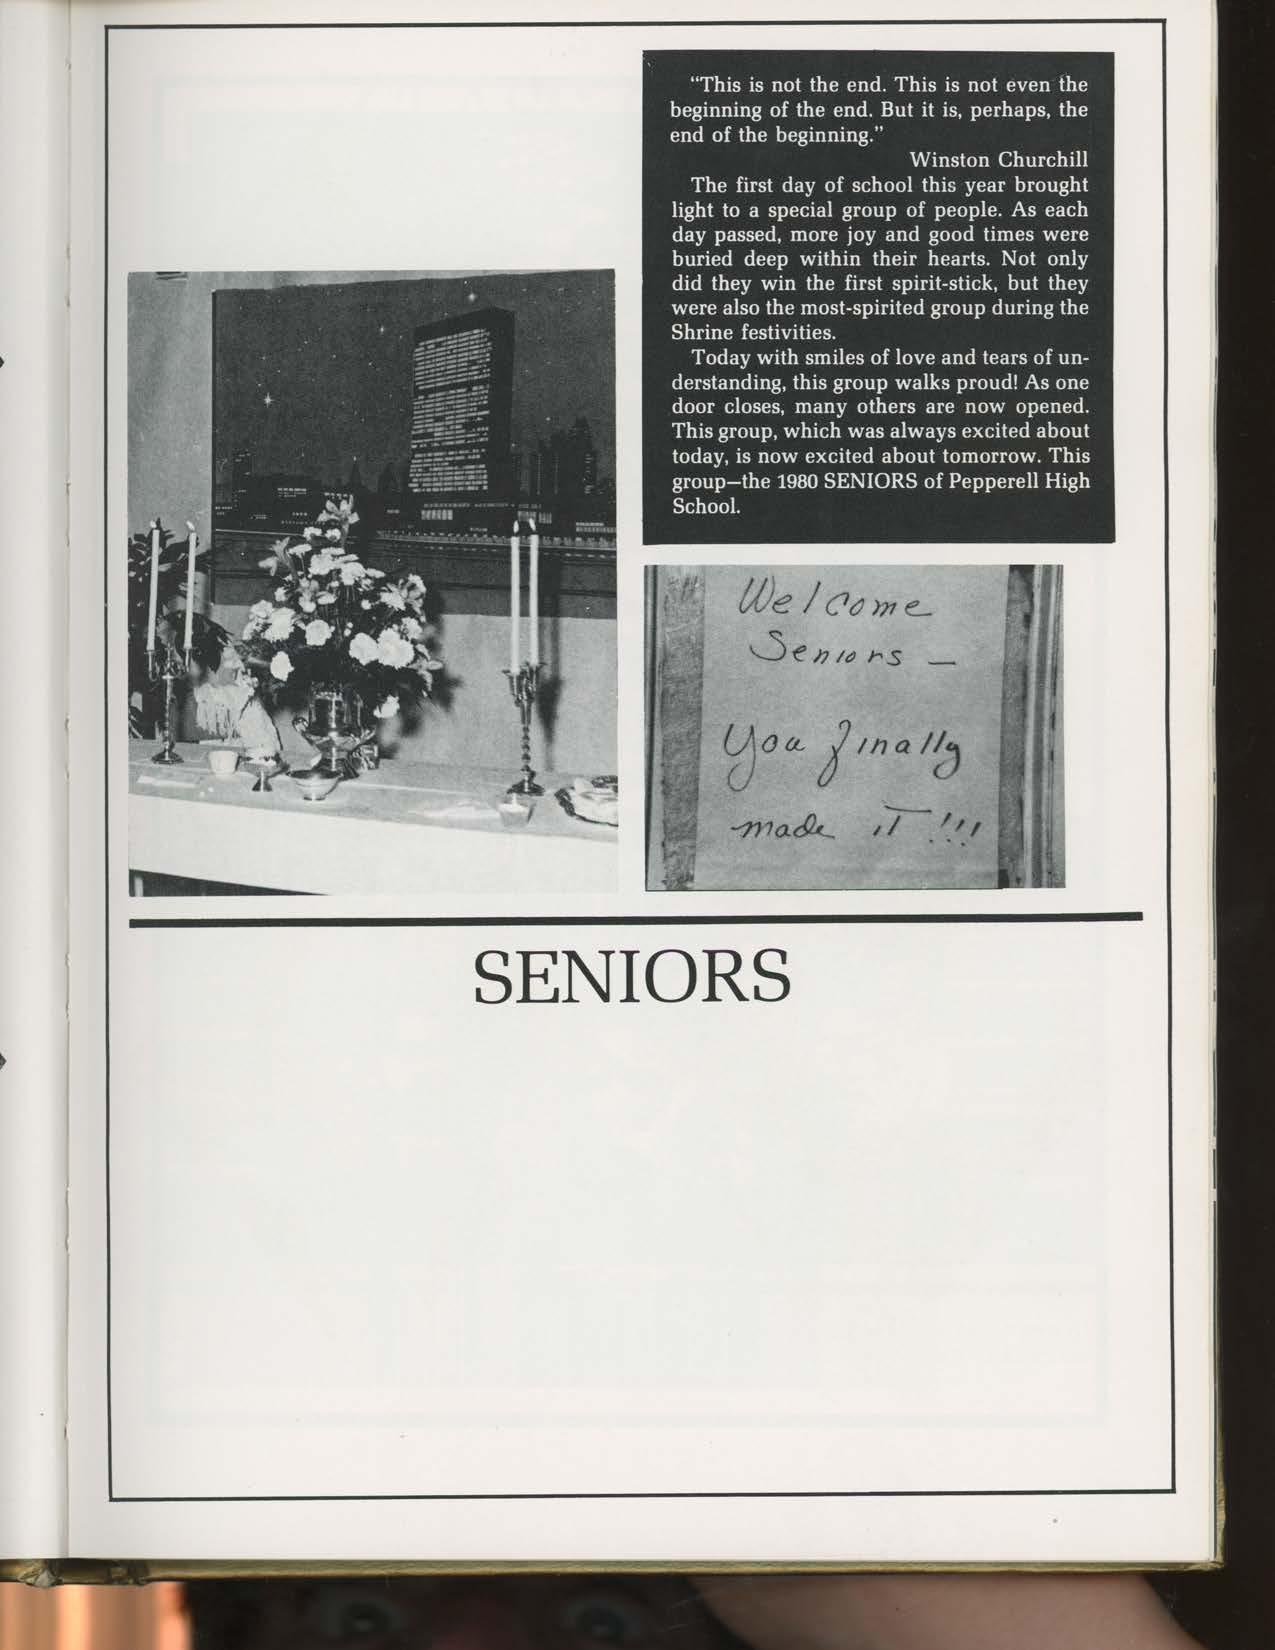 “This is not the end. This is not even the
beginning of the end. But it is, perhaps, the
end of the beginning.”
Winston Churchill
The first day of school this year brought
light to a special group of people. As each
day passed, more joy and good times were
buried deep within their hearts. Not only
did they win the first spirit-stick, but they
were also the most-spirited group during the
Shrine festivities.
Today with smiles of love and tears of un-
derstanding, this group walks proud! As one
door closes, many others are now opened.
This group, which was always excited about
today, is now excited about tomorrow. This
group—the 1980 SENIORS of Pepperell High
School.
Welcome
Seniors —
You finally
made it!!!
SENIORS